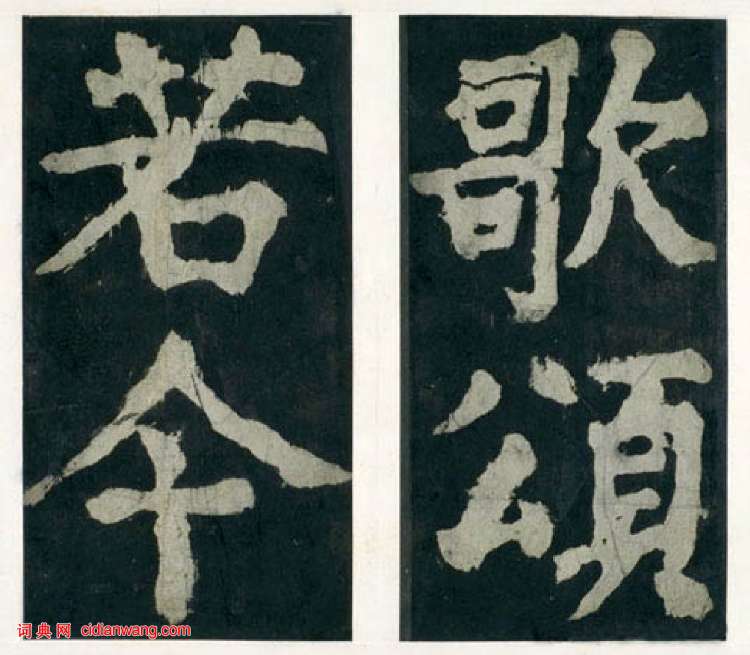 歌頌
若今
词典网 cidianwang.com